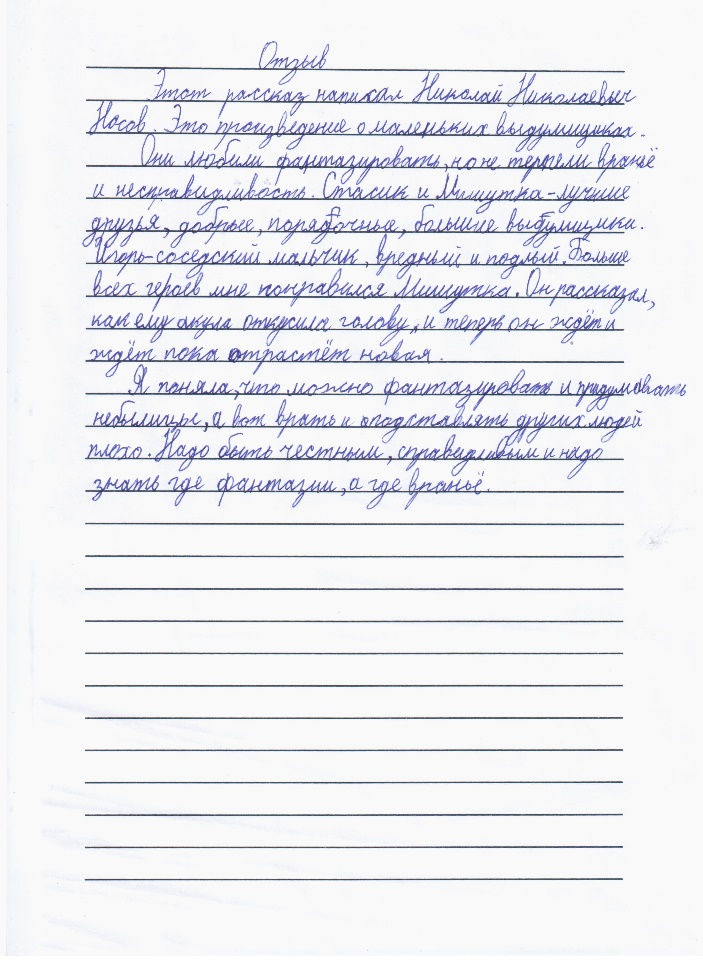 Отзыв
Этот рассказ написал Николай Николаевич
Носов. Это произведение о маленьких выдумщиках.
Они любили фантазировать, но не терпели враньё
и несправидливость. Стасик и Мишутка - лучшие
друзья, добрые, порядочные, большие выдумщики.
Игорь - соседский мальчик, вредный и подлый. Больше
всех героев мне понравился Мишутка. Он рассказал,
как ему акула откусила голову, и теперь он ждёт и
ждёт пока отрастёт новая.
Я поняла, что можно фантазировать и придумывать
небылицы, а вот врать и подставлять других людей
плохо. Надо быть честным, справидливым и надо
знать где фантазии, а где враньё.